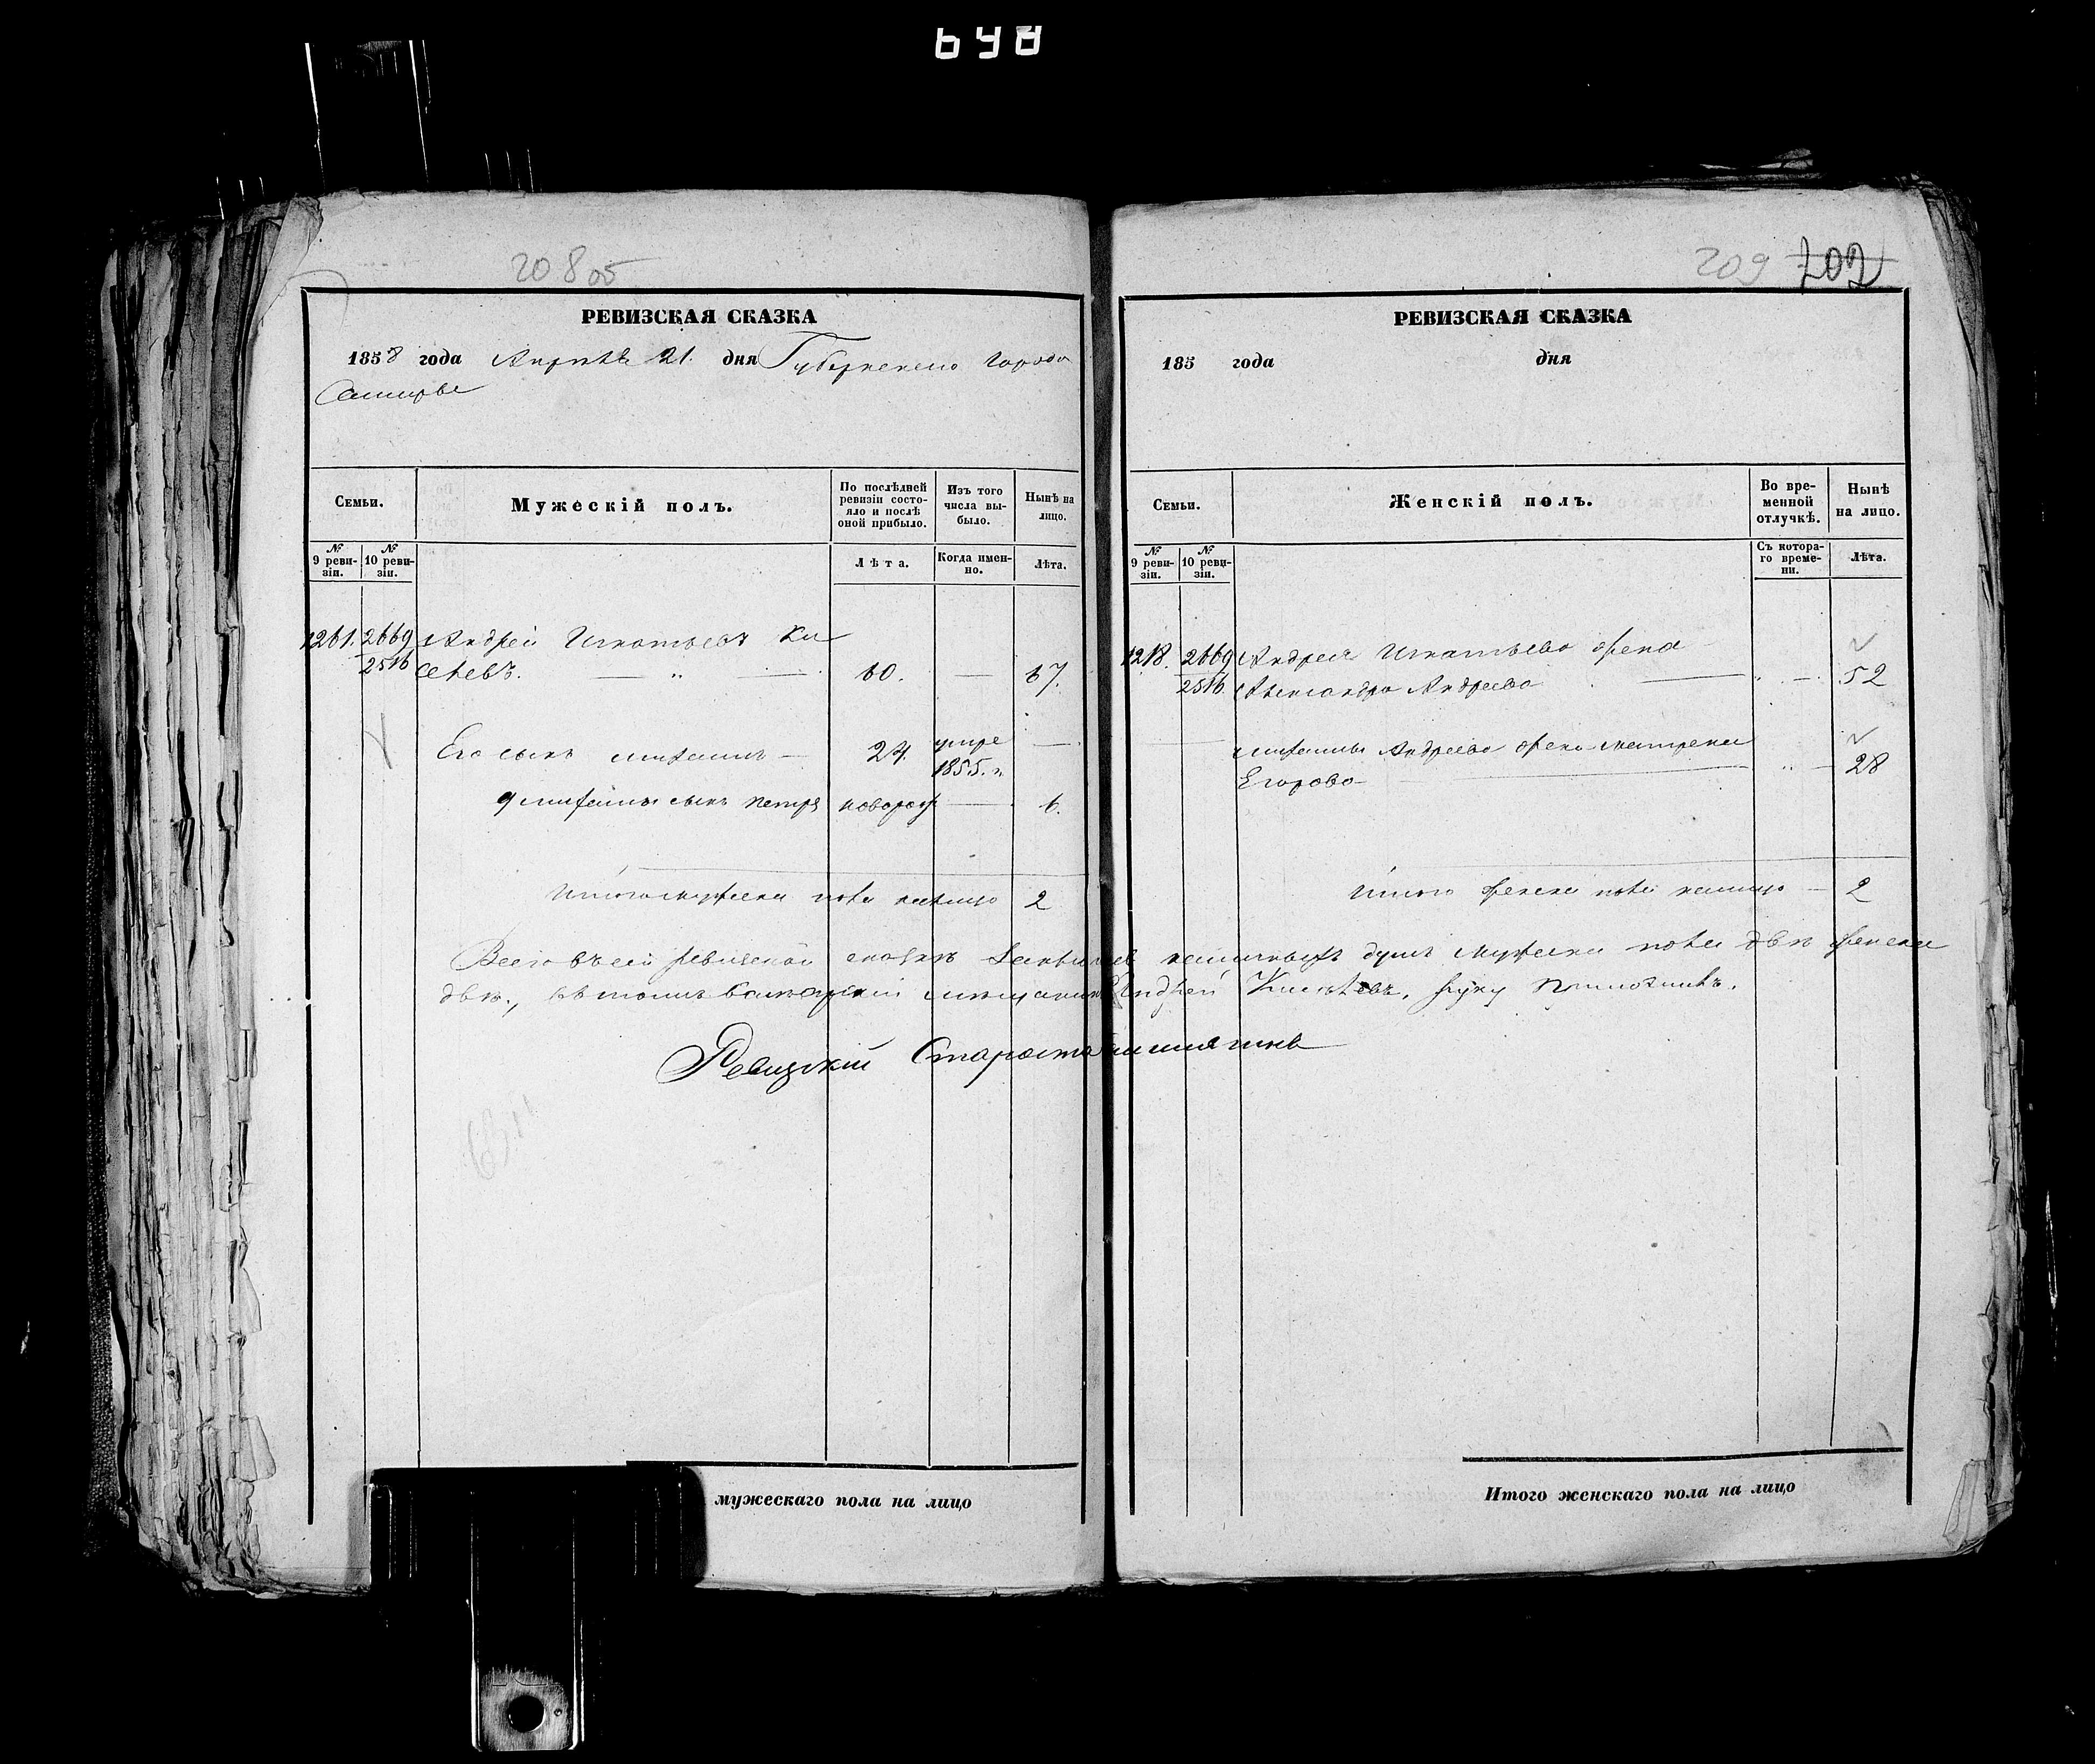 698
208 об
РЕВИЗСКАЯ СКАЗКА
1858 года Апреля 21. дня Губернскаго города
Самары
Семьи.
Мужескій полъ.
По послѣдней ревизіи состояло и послѣ оной прибыло.
Изъ того числа выбыло.
Нынѣ на лицо.
№ 9 ревизіи.
№ 10 ревизіи.
Лѣта.
Когда именно.
Лѣта.
1261. 2669 Андрей Игнатьевъ Ки
2516 селевъ. — „ — 60. — 67.
Его сынъ — 24. умре —
1855. г.
сынъ Петръ новорож — 6.
Итого мужеска пола налицо 2
209 702
РЕВИЗСКАЯ СКАЗКА
185 года дня
Семьи.
Женскій полъ.
Во временной отлучкѣ.
Нынѣ на лицо.
№ 9 ревизіи.
№ 10 ревизіи.
Съ котораго времени.
Лѣта.
1218. 2669 Андрея Игнатьева жена
2516 Александра Андреева — „ — 52
Андреева жена Матрена
Егорова — „ — 28
Итого женска пола налицо — 2
Всего въ сей ревизской сказкѣ наличныхъ душъ мужеска пола двѣ женска
двѣ., въ томъ Самарскій мещанинъ Андрей Киселевъ, руку приложилъ.
Ревизскій Староста
мужескаго пола на лицо
Итого женскаго пола на лицо